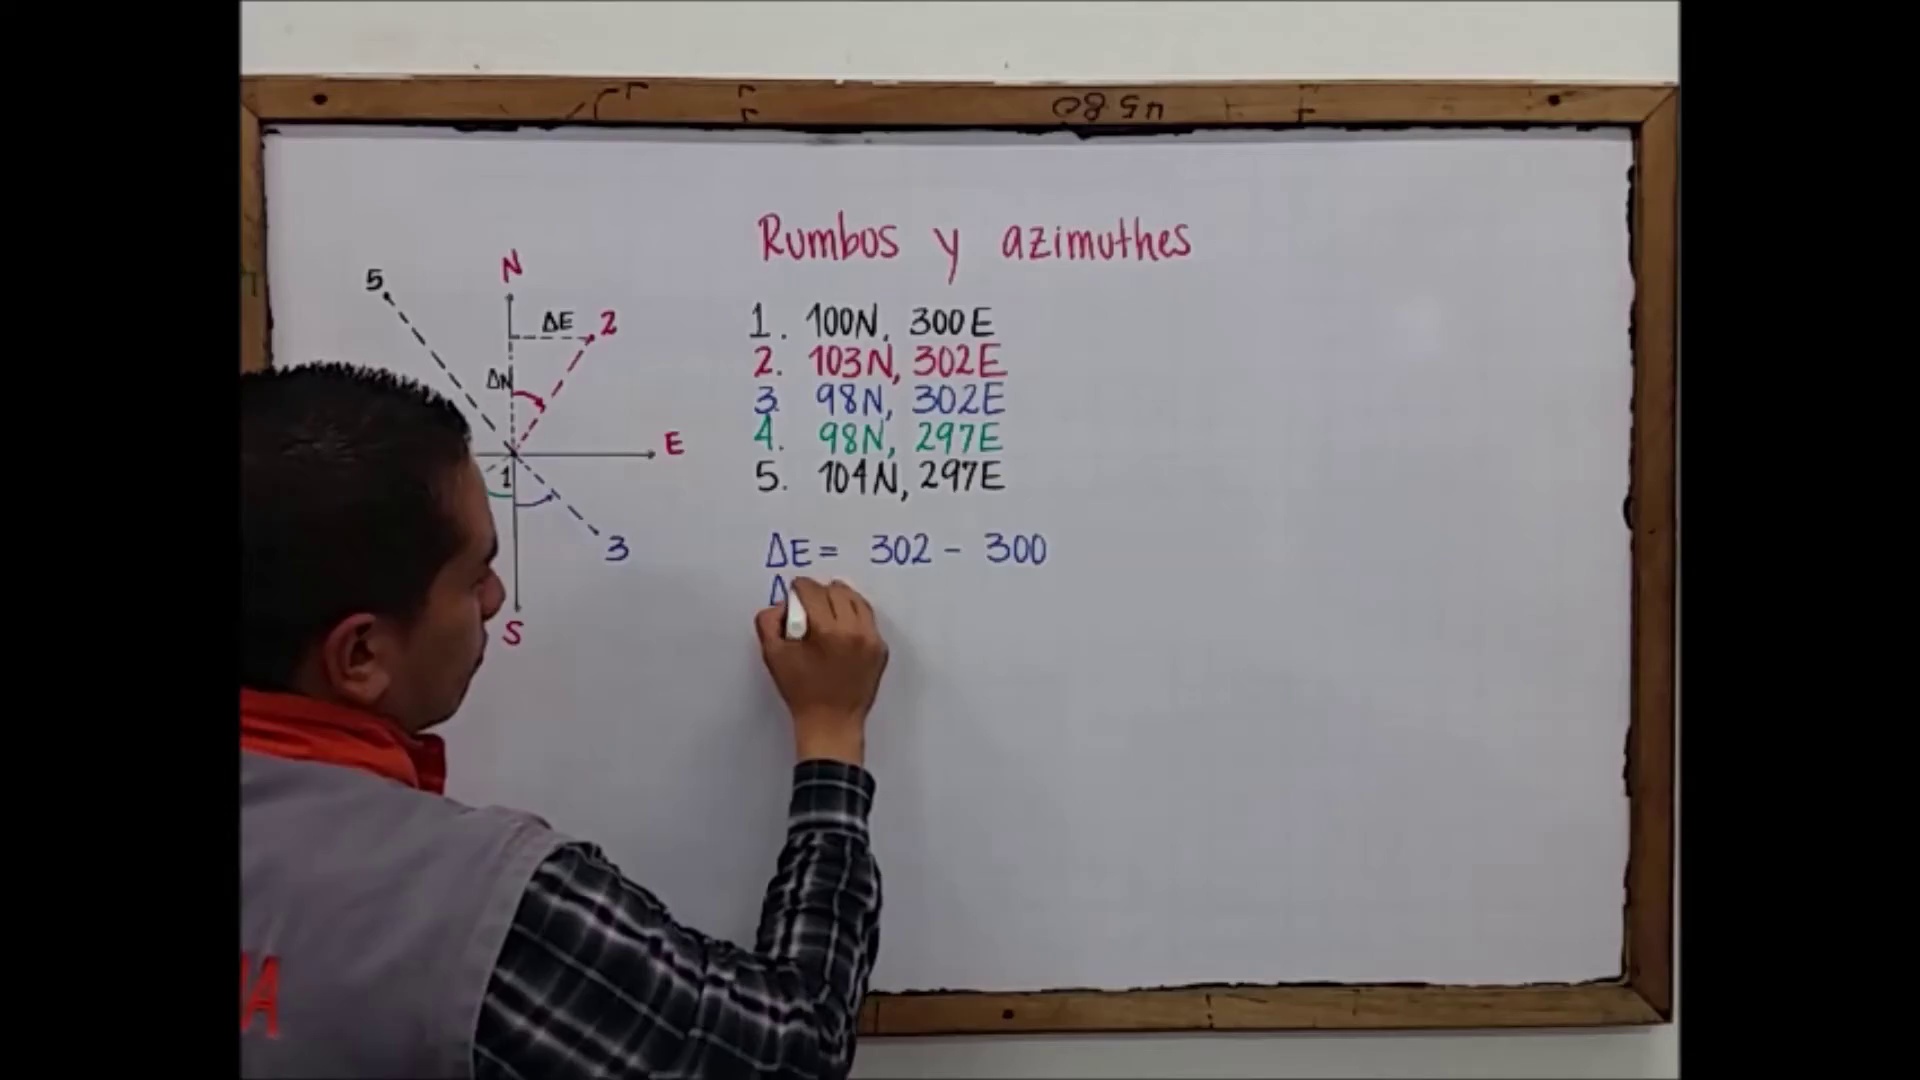 Rumbos y azimuthes
N
5
ΔE
2
ΔN
E
1
3
S
1. 100N, 300E
2. 103N, 302E
3. 98N, 302E
4. 98N, 297E
5. 104N, 297E
ΔE = 302 - 300
Δ
4580
A